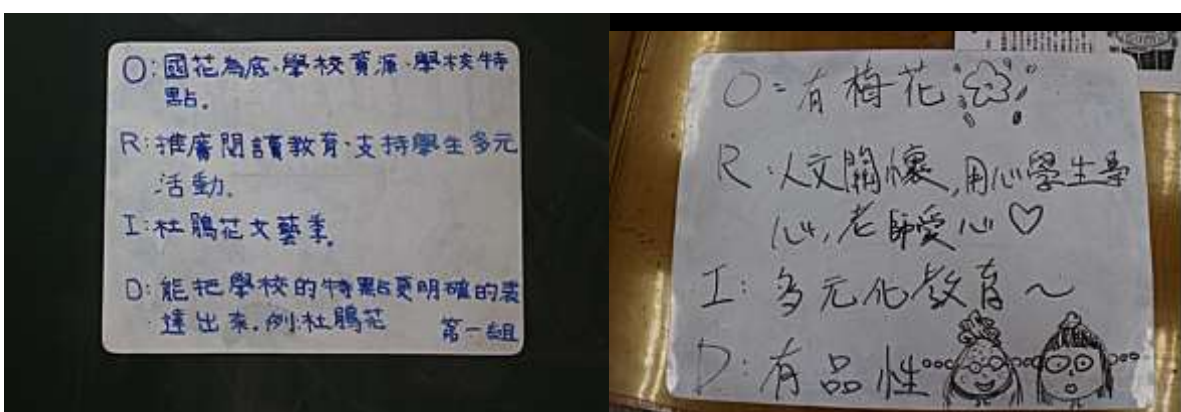 O:國花為底、學校資源、學校特
點。
R:推廣閱讀教育、支持學生多元
活動。
I:杜鵑花文藝季。
D:能把學校的特點更明確的表
達出來。例:杜鵑花 第一組
O:有梅花
R:人文關懷,用心學生專
心,老師愛心♡
I:多元化教育～
D:有品性